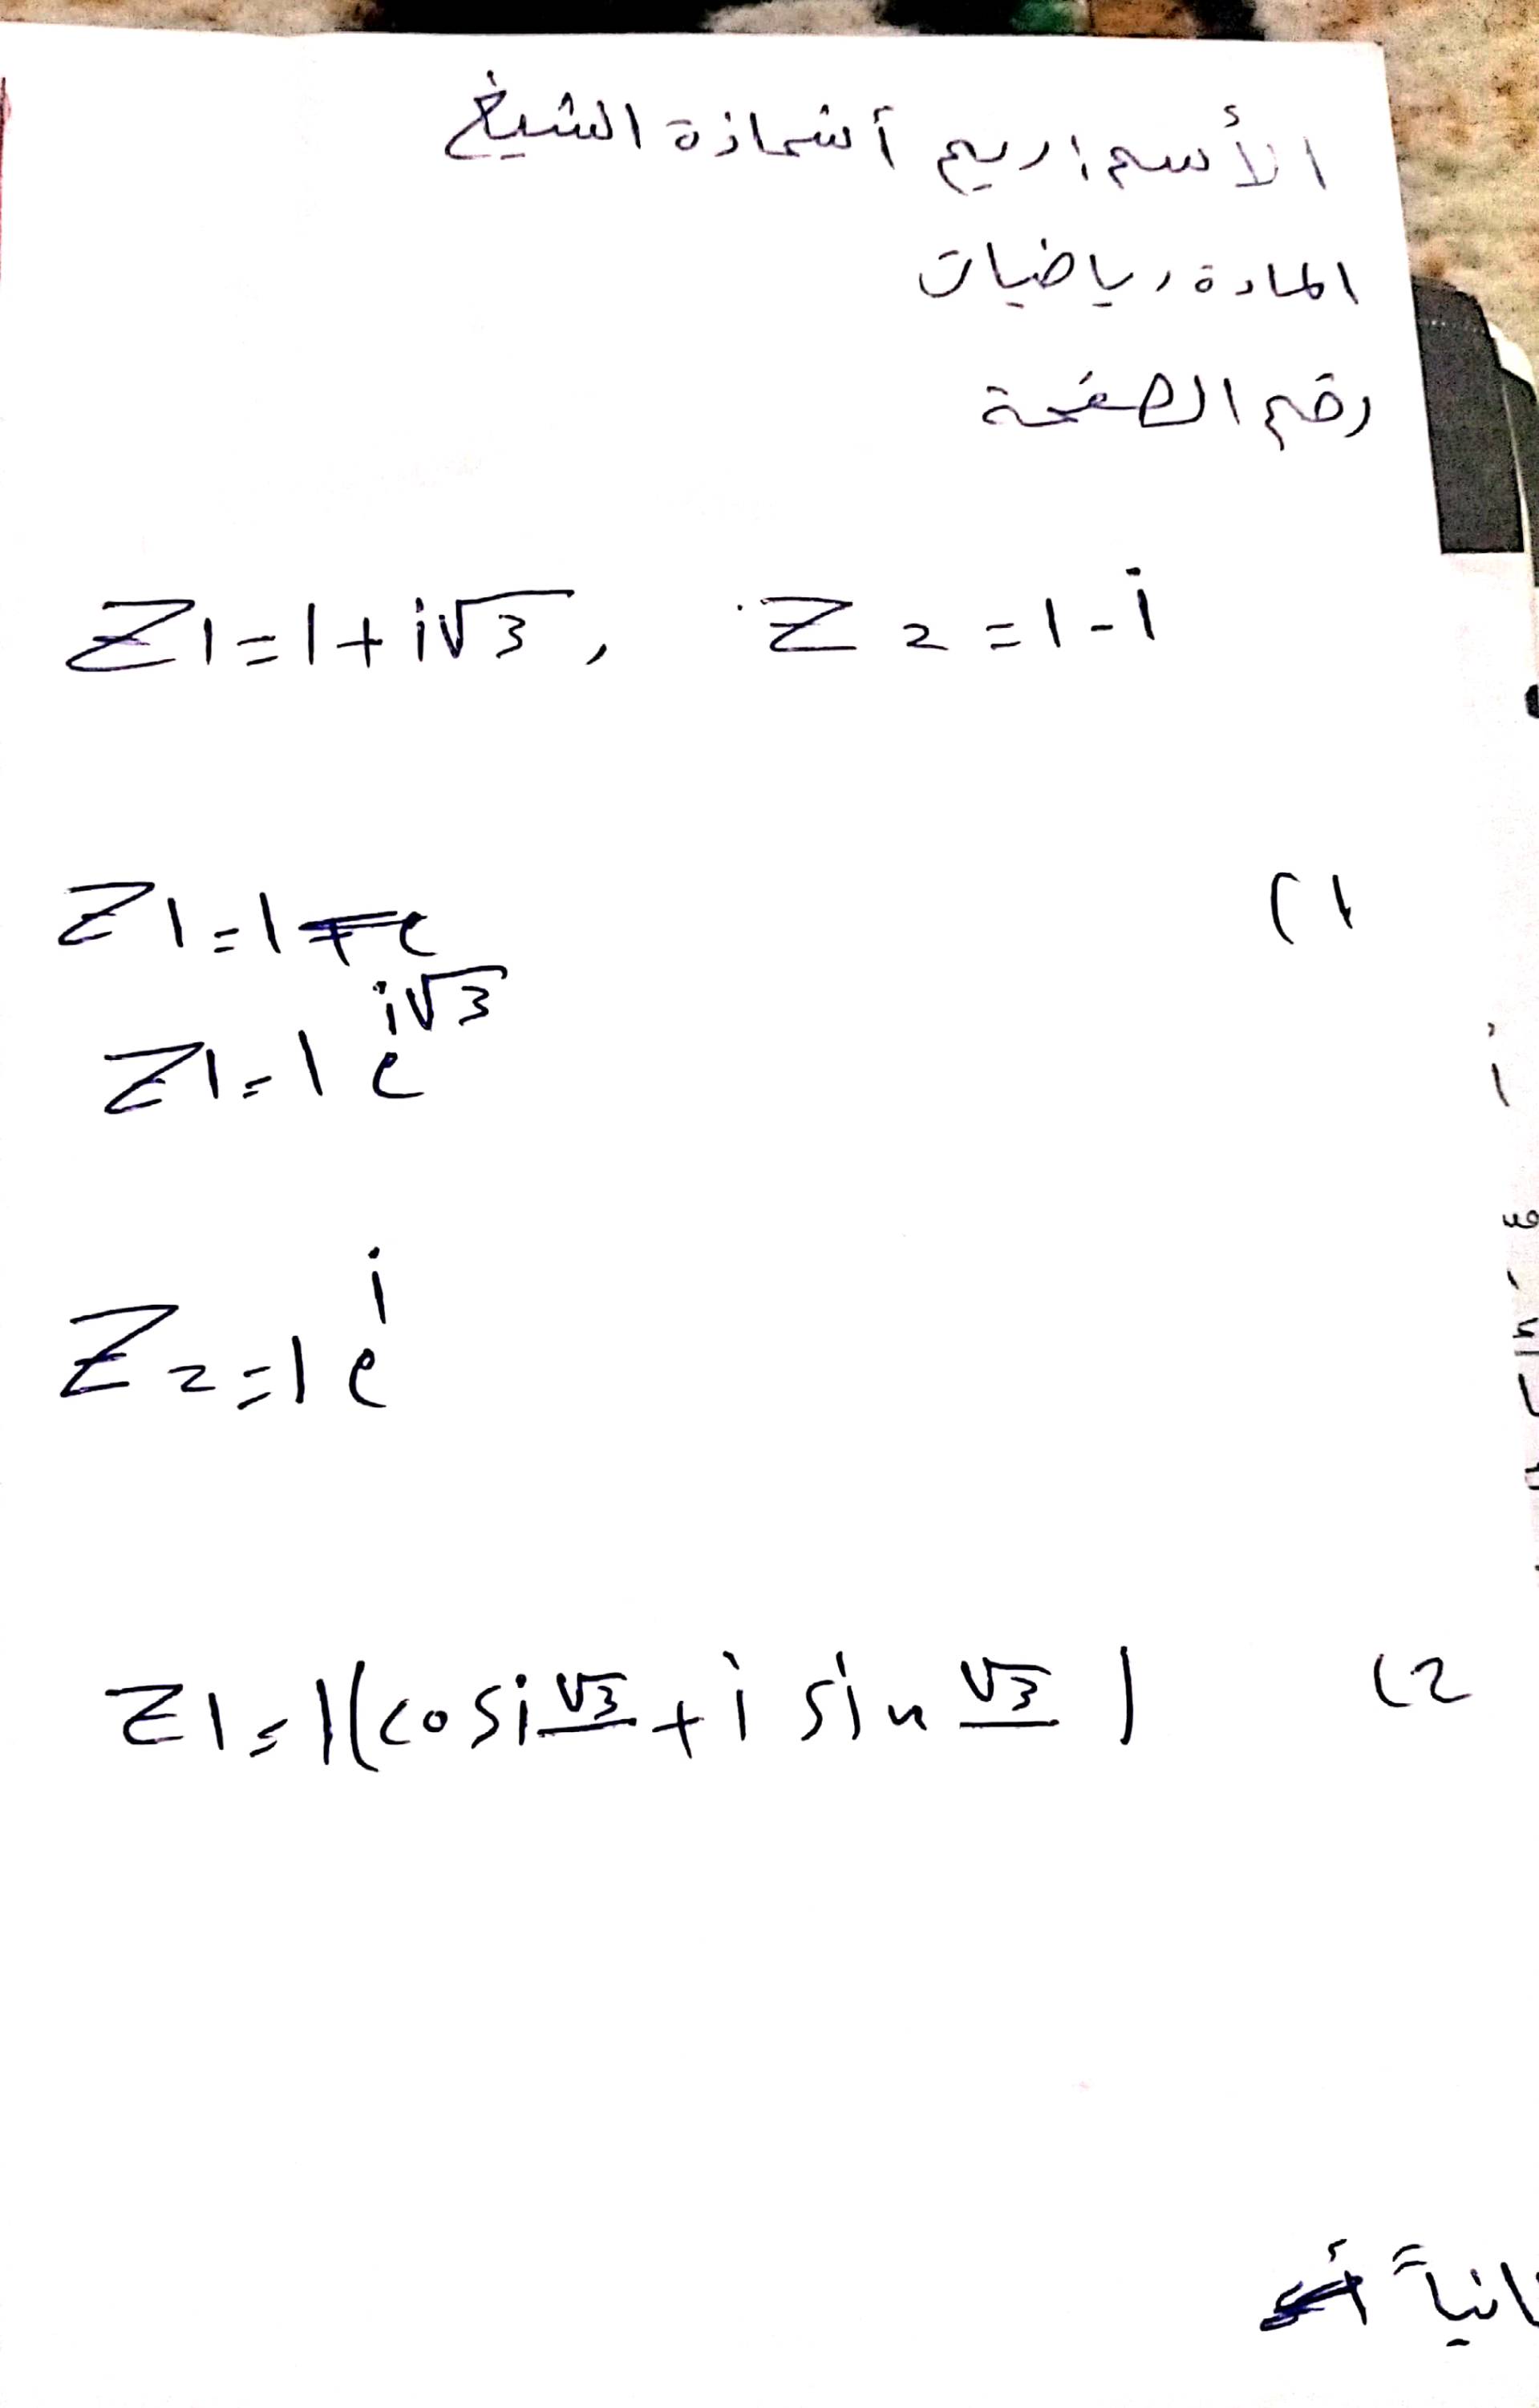 الأسم: ريم أشماذة الشيخ
المادة رياضيات
رقم الصفحة
Z1=1+i√3, Z2=1-i
(1
Z1=1+e
Z1=1e^i√3
Z2=1e^i
(2
Z1=1(cosi√3+i sin √3)